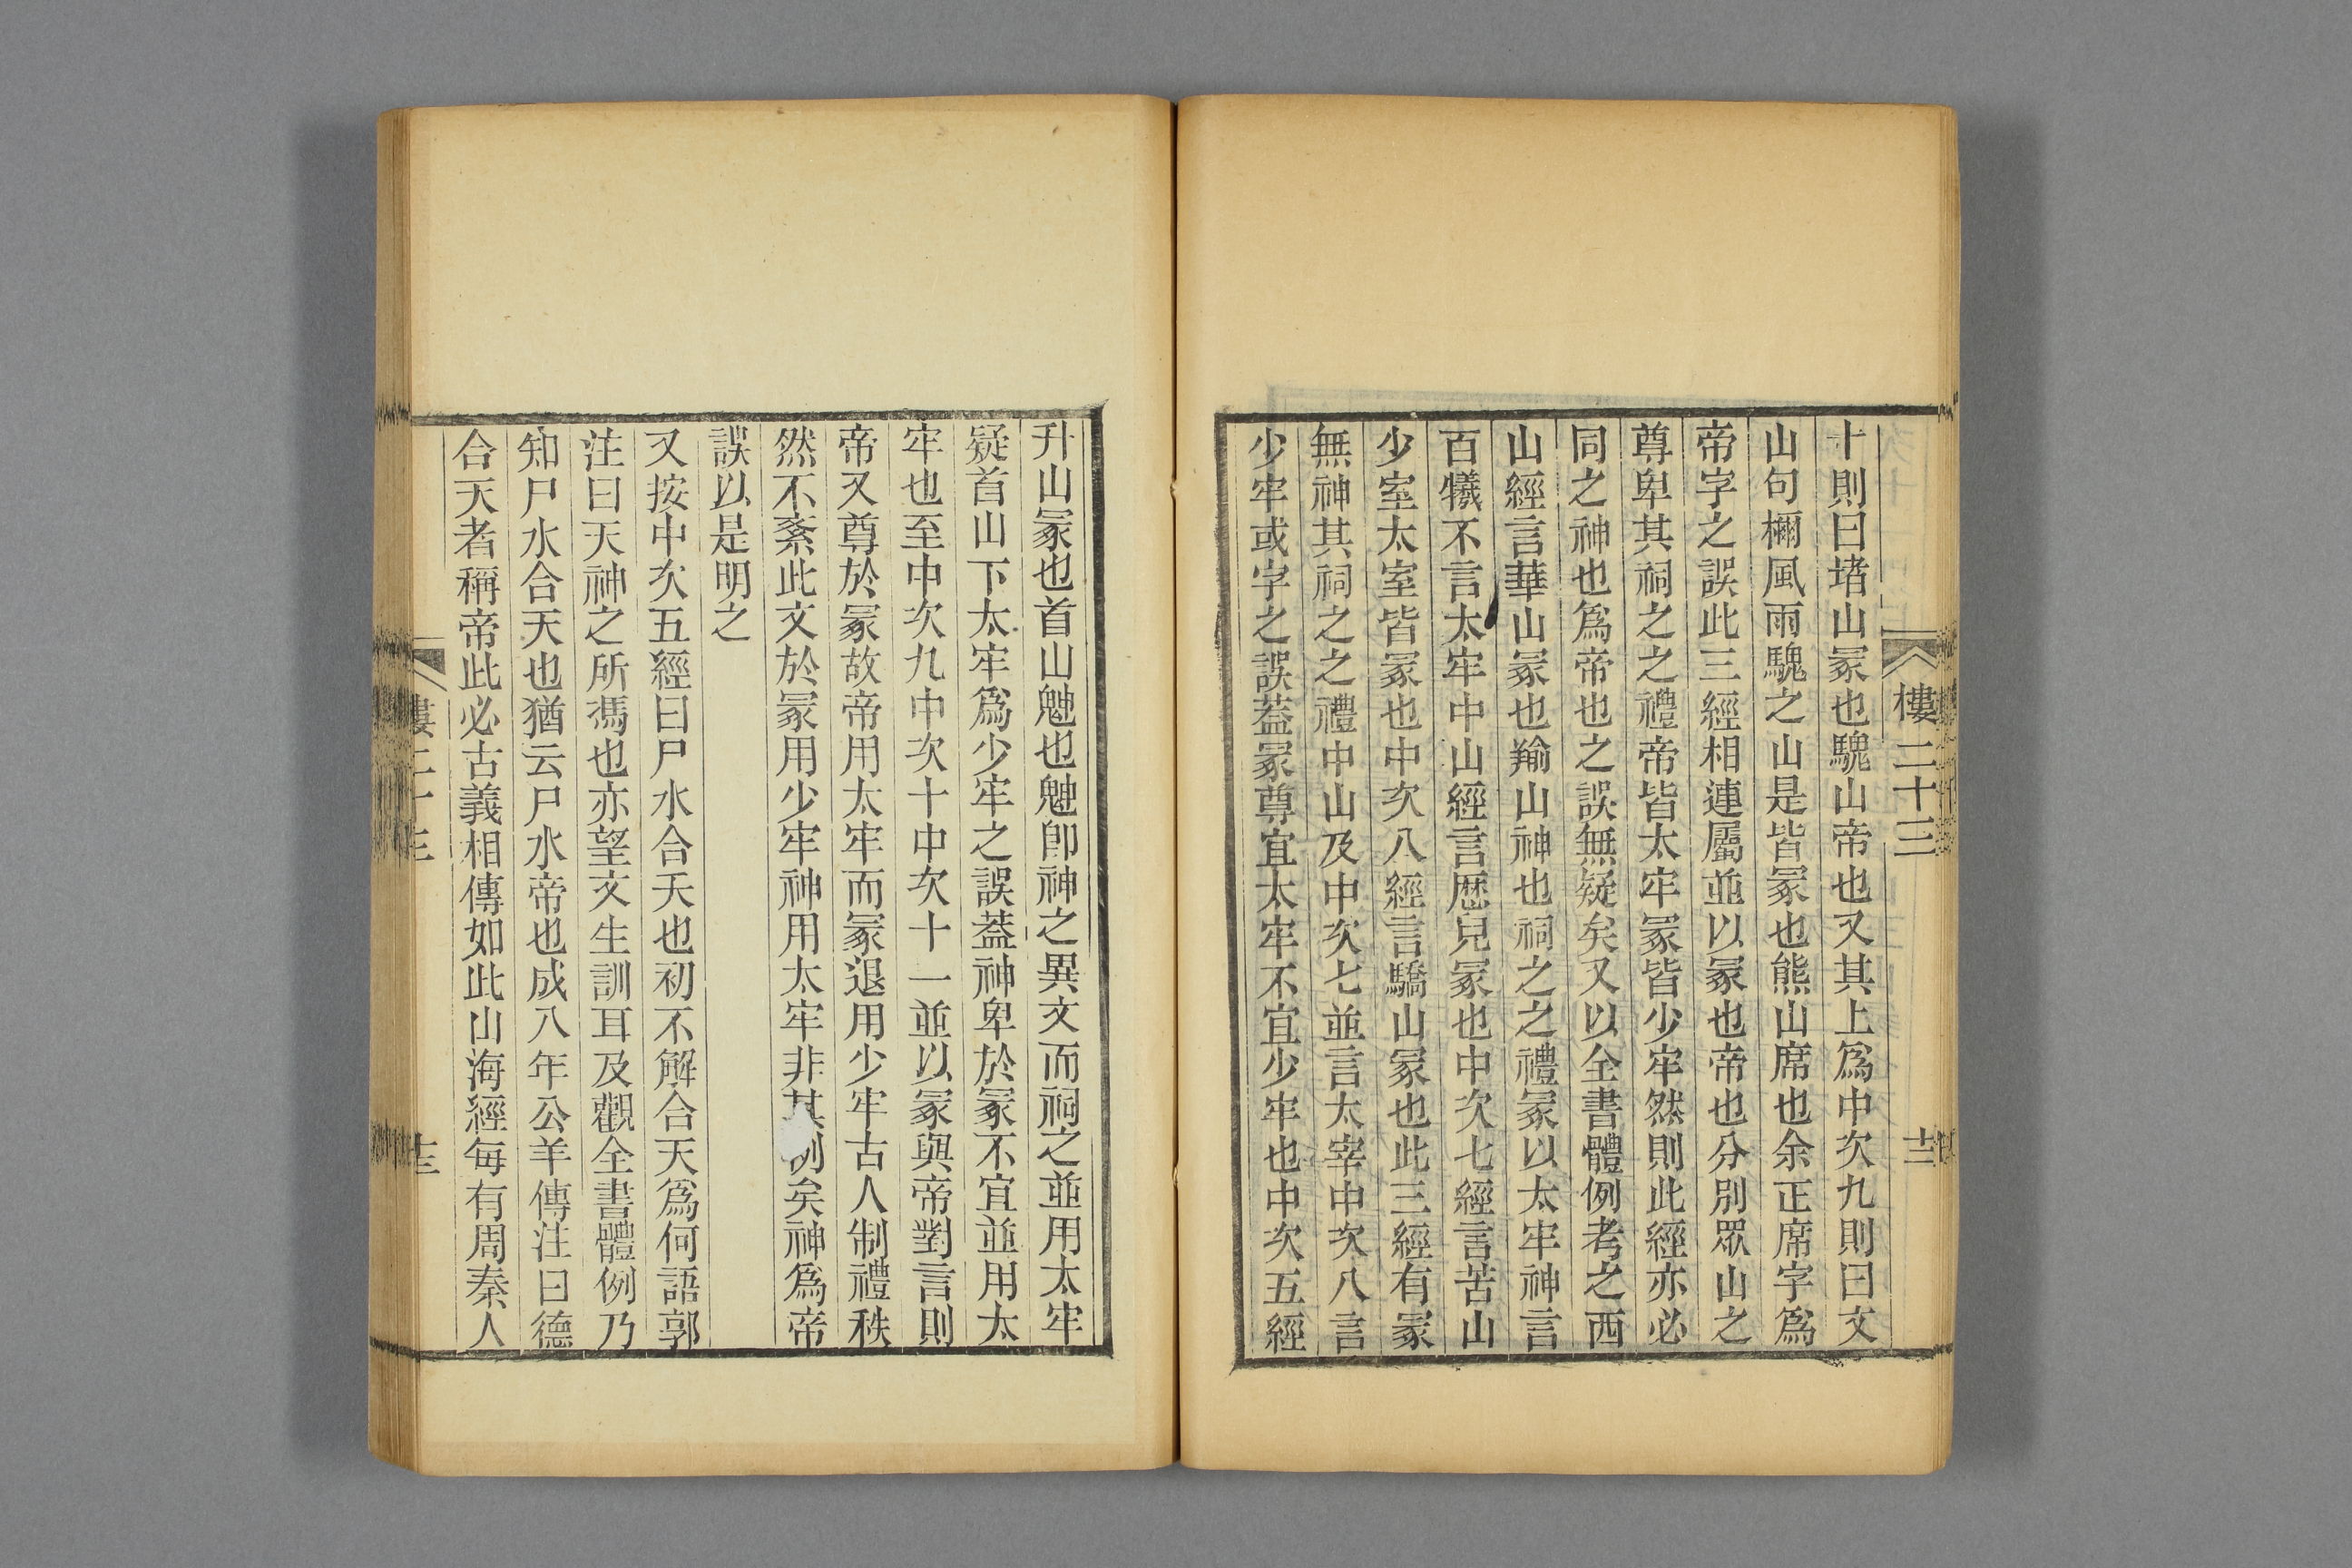 樓二十三
十二
十則曰堵山冢也騩山帝也又其上爲中次九則曰文
山句檷風雨騩之山是皆冢也熊山席也余正席字爲
帝字之誤此三經相連屬並以冢也帝也分別眾山之
尊卑其祠之之禮帝皆太牢冢皆少牢然則此經亦必
同之神也爲帝也之誤無疑矣又以全書體例考之西
山經言華山冢也羭山神也祠之之禮冢以太牢神言
百犧不言太牢中山經言歴兒冢也中次七經言苦山
少室太室皆冢也中次八經言驕山冢也此三經有冢
無神其祠之之禮中山及中次七並言太宰中次八言
少牢或字之誤葢冢尊宜太牢不宜少牢也中次五經
升山冢也首山䰠也䰠卽神之異文而祠之並用太牢
疑首山下太牢爲少牢之誤葢神卑於冢不宜並用太
牢也至中次九中次十中次十一並以冢與帝對言則
帝又尊於冢故帝用太牢而冢退用少牢古人制禮秩
然不紊此文於冢用少牢神用太牢非其例矣神爲帝
誤以是明之
又按中次五經曰尸水合天也初不解合天爲何語郭
注曰天神之所馮也亦望文生訓耳及觀全書體例乃
知尸水合天也猶云尸水帝也成八年公羊傳注曰德
合天者稱帝此必古義相傳如此山海經每有周秦人
樓二十三
十三